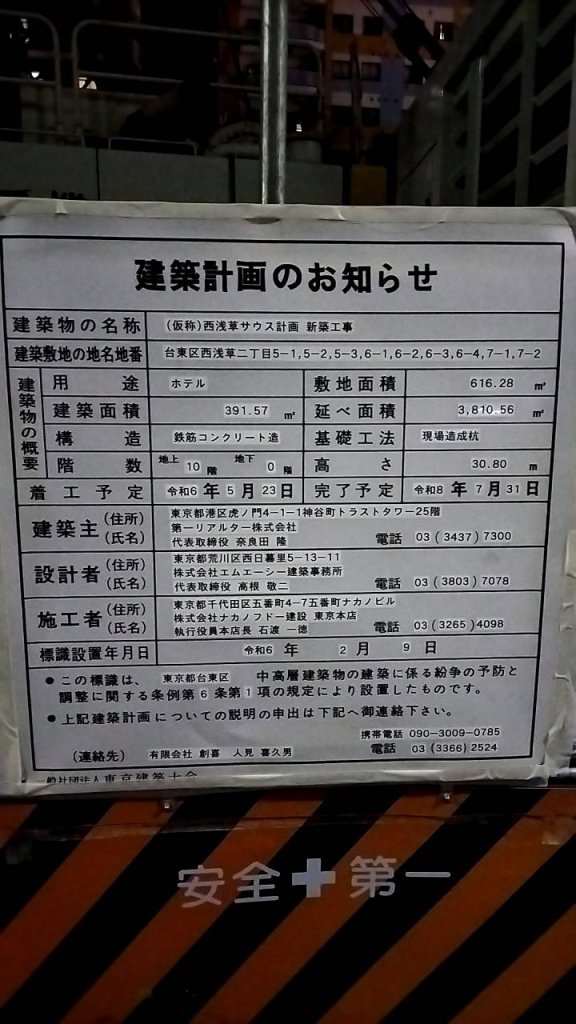 建築計画のお知らせ
建築物の名称 (仮称)西浅草サウス計画 新築工事
建築敷地の地名地番 台東区西浅草二丁目5-1,5-2,5-3,6-1,6-2,6-3,6-4,7-1,7-2
建築物の概要
用途 ホテル 敷地面積 616.28 ㎡
建築面積 391.57 ㎡ 延べ面積 3,810.56 ㎡
構造 鉄筋コンクリート造 基礎工法 現場造成杭
階数 地上 10 階 地下 0 階 高さ 30.80 m
着工予定 令和6 年 5 月 23 日 完了予定 令和8 年 7 月 31 日
建築主 (住所) (氏名) 東京都港区虎ノ門4-1-1神谷町トラストタワー25階
第一リアルター株式会社
代表取締役 奈良田 隆 電話 03 (3437) 7300
設計者 (住所) (氏名) 東京都荒川区西日暮里5-13-11
株式会社エムエーシー建築事務所
代表取締役 高根 敬二 電話 03 (3803) 7078
施工者 (住所) (氏名) 東京都千代田区五番町4-7五番町ナカノビル
株式会社ナカノフドー建設 東京本店
執行役員本店長 石渡 一徳 電話 03 (3265) 4098
標識設置年月日 令和6 年 2 月 9 日
●この標識は、 東京都台東区 中高層建築物の建築に係る紛争の予防と
調整に関する条例第6条第1項の規定により設置したものです。
●上記建築計画についての説明の申出は下記へ御連絡下さい。
携帯電話 090-3009-0785
(連絡先) 有限会社 創喜 人見 喜久男 電話 03 (3366) 2524
一般社団法人東京建築士会
安全✚第一